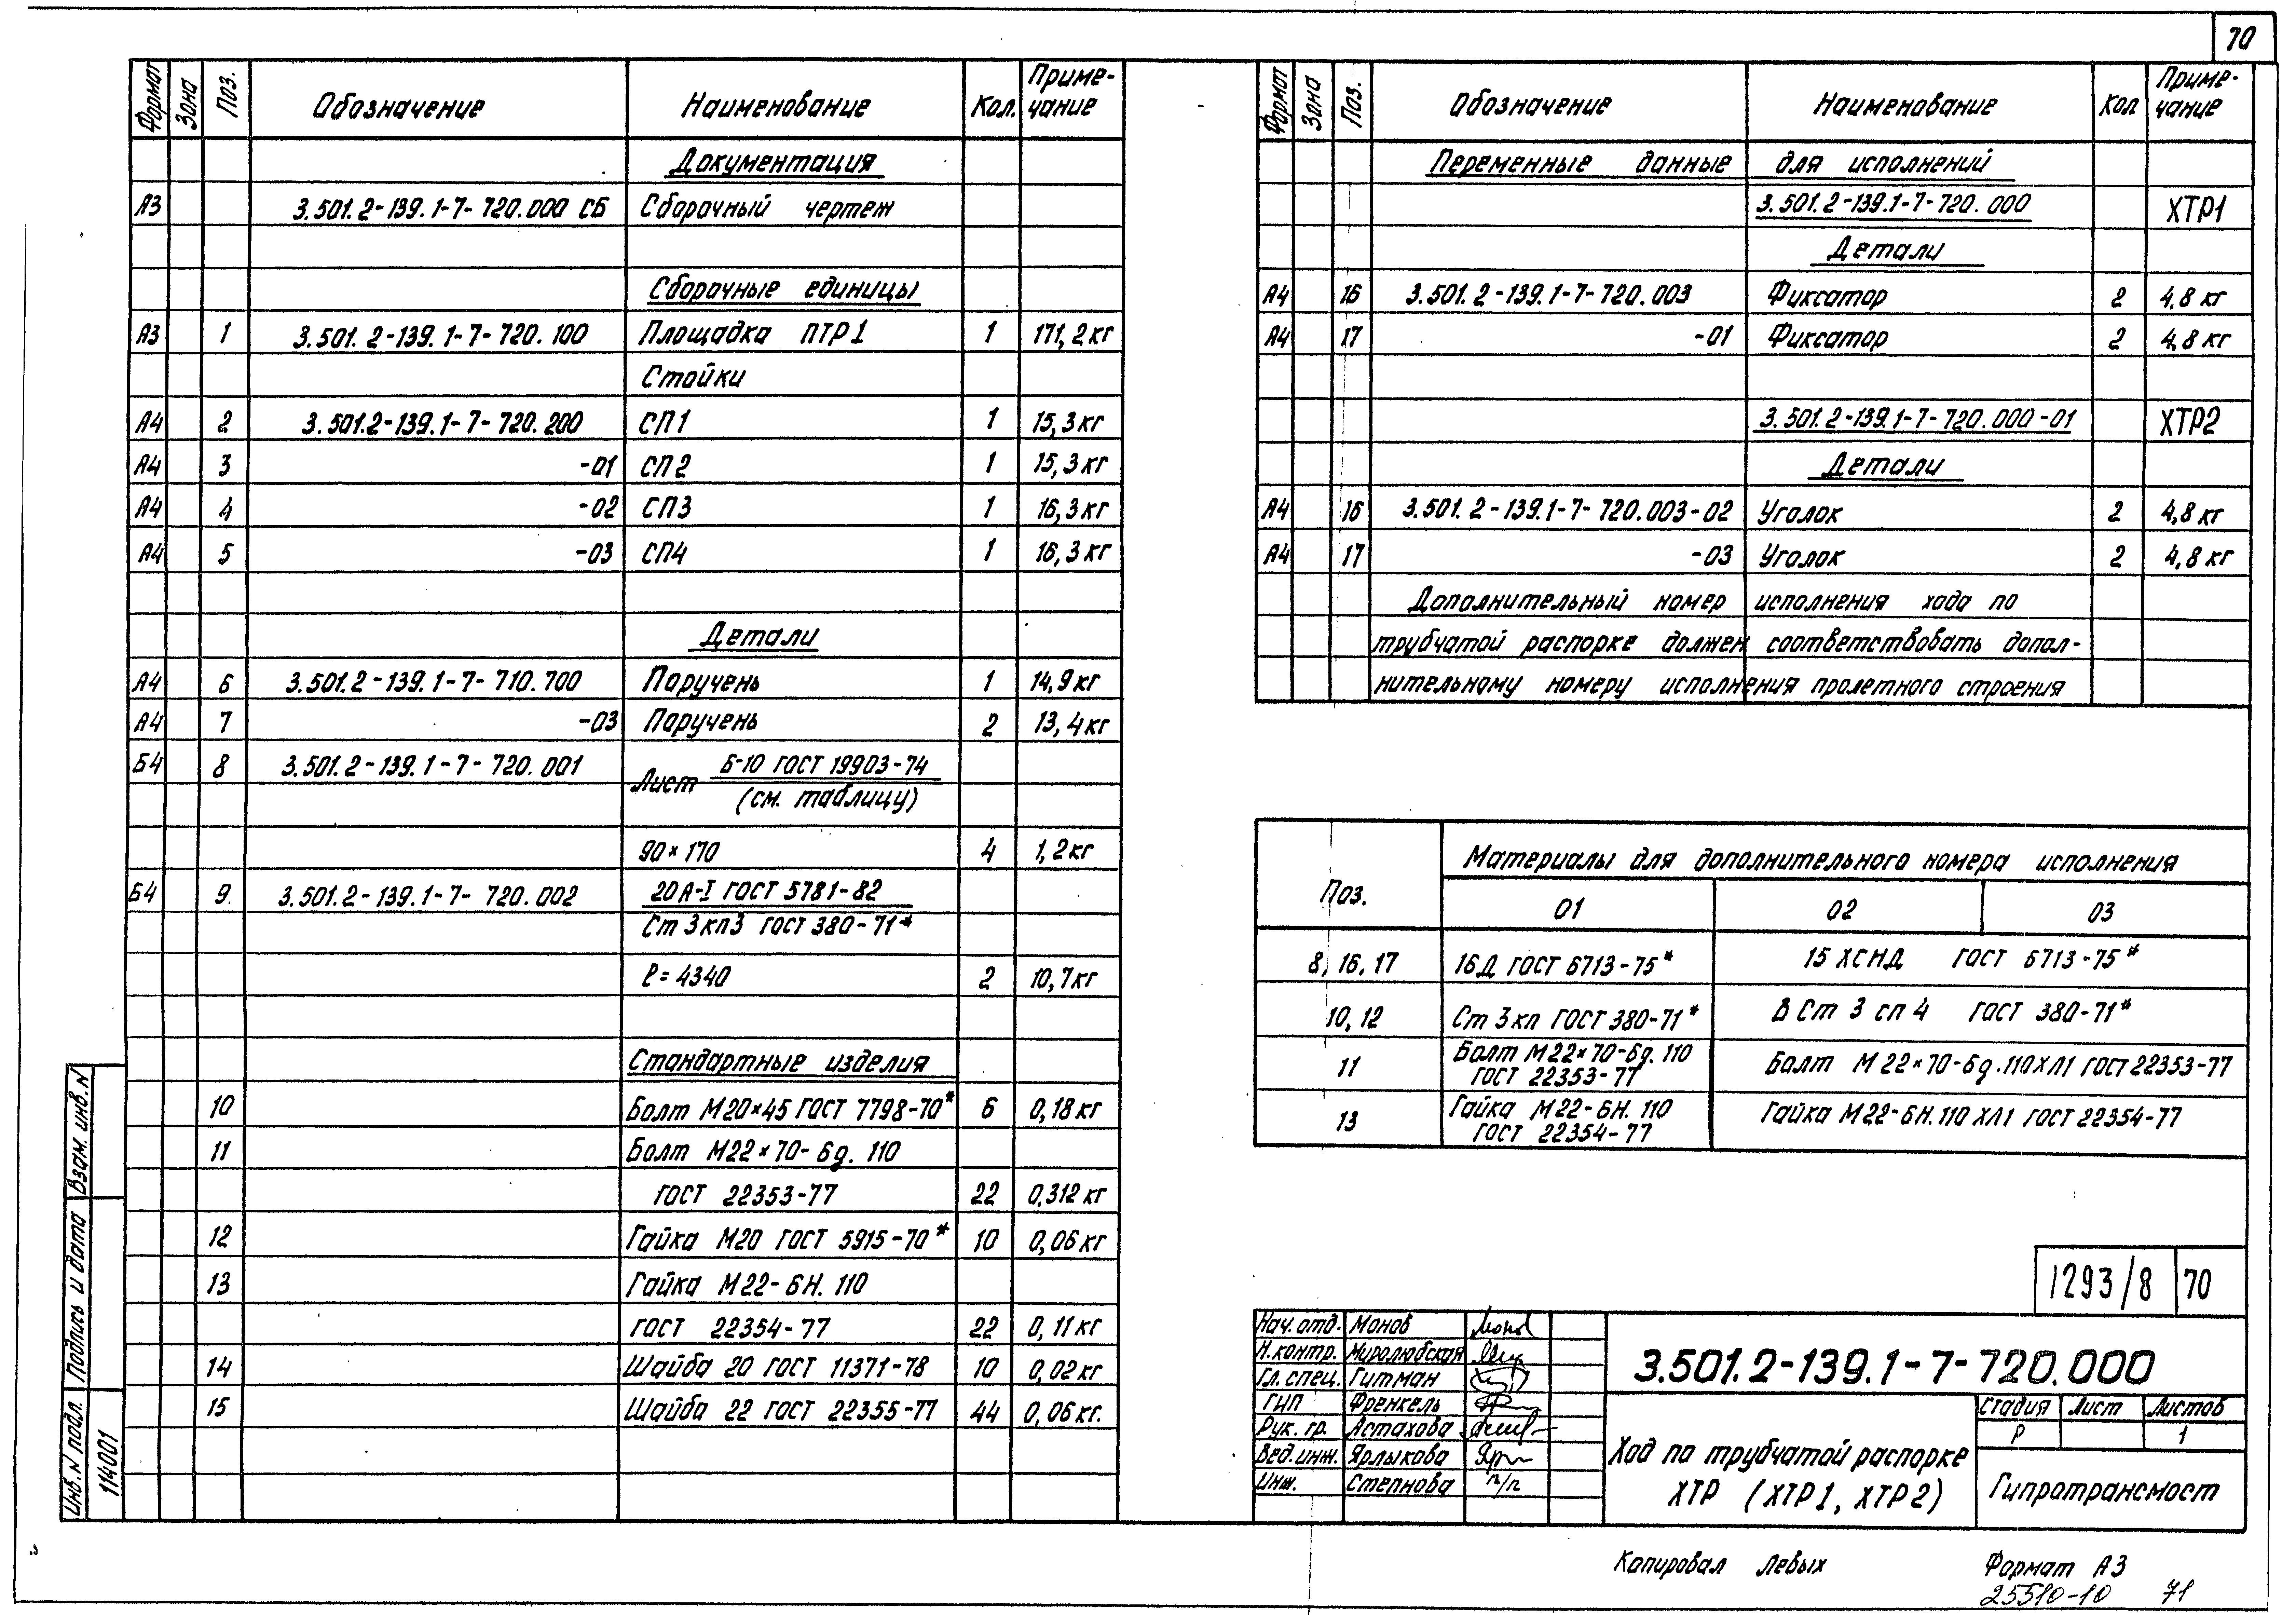 70
Формат Зона Поз. Обозначение Наименование Кол. Приме-
чание
Документация
А3 3.501.2-139.1-7-720.000 СБ Сборочный чертеж
Сборочные единицы
А3 1 3.501.2-139.1-7-720.100 Площадка ПТР1 1 171,2кг
Стойки
А4 2 3.501.2-139.1-7-720.200 СП1 1 15,3кг
А4 3 -01 СП2 1 15,3кг
А4 4 -02 СП3 1 16,3кг
А4 5 -03 СП4 1 16,3кг
Детали
А4 6 3.501.2-139.1-7-710.700 Поручень 1 14,9кг
А4 7 -03 Поручень 2 13,4кг
Б4 8 3.501.2-139.1-7-720.001 Лист Б-10 ГОСТ 19903-74
(см. таблицу)
90×170 4 1,2кг
Б4 9. 3.501.2-139.1-7-720.002 20А-I ГОСТ 5781-82
Ст 3кп3 ГОСТ 380-71*
ℓ=4340 2 10,7кг
Стандартные изделия
10 Болт М20×45 ГОСТ 7798-70* 6 0,18кг
11 Болт М22×70-6g. 110
ГОСТ 22353-77 22 0,312кг
12 Гайка М20 ГОСТ 5915-70* 10 0,06кг
13 Гайка М22-6Н. 110
ГОСТ 22354-77 22 0,11кг
14 Шайба 20 ГОСТ 11371-78 10 0,02кг
15 Шайба 22 ГОСТ 22355-77 44 0,06кг.
Формат Зона Поз. Обозначение Наименование Кол Приме-
чание
Переменные данные для исполнений
3.501.2-139.1-7-720.000 ХТР1
Детали
А4 16 3.501.2-139.1-7-720.003 Фиксатор 2 4,8кг
А4 17 -01 Фиксатор 2 4,8кг
3.501.2-139.1-7-720.000-01 ХТР2
Детали
А4 16 3.501.2-139.1-7-720.003-02 Уголок 2 4,8кг
А4 17 -03 Уголок 2 4,8кг
Дополнительный номер исполнения хода по
трубчатой распорке должен соответствовать допол-
нительному номеру исполнения пролетного строения
Поз. Материалы для дополнительного номера исполнения
01 02 03
8, 16, 17 16Д ГОСТ 6713-75* 15 ХСНД ГОСТ 6713-75*
10, 12 Ст 3кп ГОСТ 380-71* В Ст 3 сп 4 ГОСТ 380-71*
11 Болт М22×70-6g. 110
ГОСТ 22353-77 Болт М22×70-6g.110ХЛ1 ГОСТ 22353-77
13 Гайка М22-6Н. 110
ГОСТ 22354-77 Гайка М22-6Н.110 ХЛ1 ГОСТ 22354-77
1293/8 70
Нач.отд. Монов
Н.контр. Миролюбская
Гл.спец. Гитман
ГИП Френкель
Рук. гр. Астахова
Вед.инж. Ярлыкова
Инж. Степнова п/п
3.501.2-139.1-7-720.000
Ход по трубчатой распорке
ХТР (ХТР1, ХТР2)
Стадия Лист Листов
Р 1
Гипротрансмост
Инв.N подл. Подпись и дата Взам. инв.N
114001
Копировал Левых Формат А3
25510-10 71